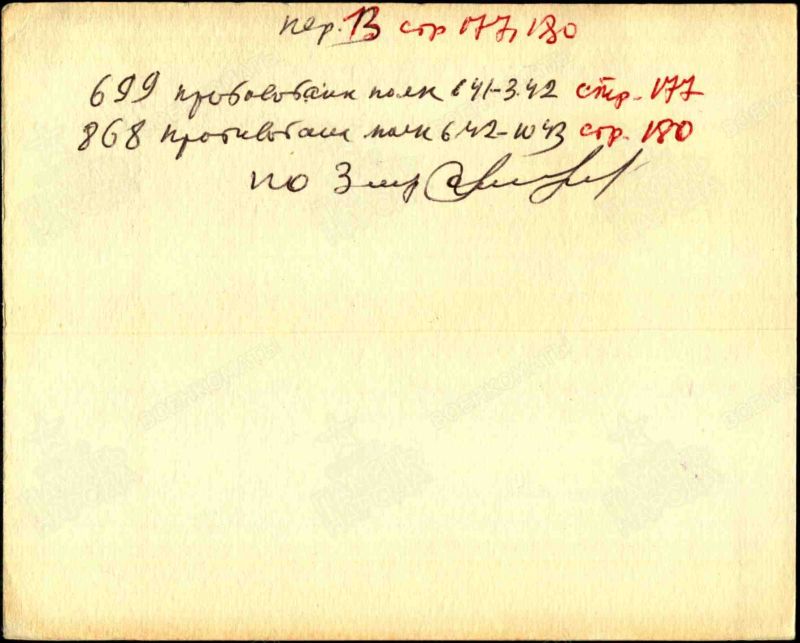 пер. 13 стр 177, 180
699 противотанк полк 6 41-3.42 стр. 177
868 противотанк полк 6 42-10 43 стр. 180
по
ПАМЯТЬ НАРОДА
ВОЕНКОМАТЫ